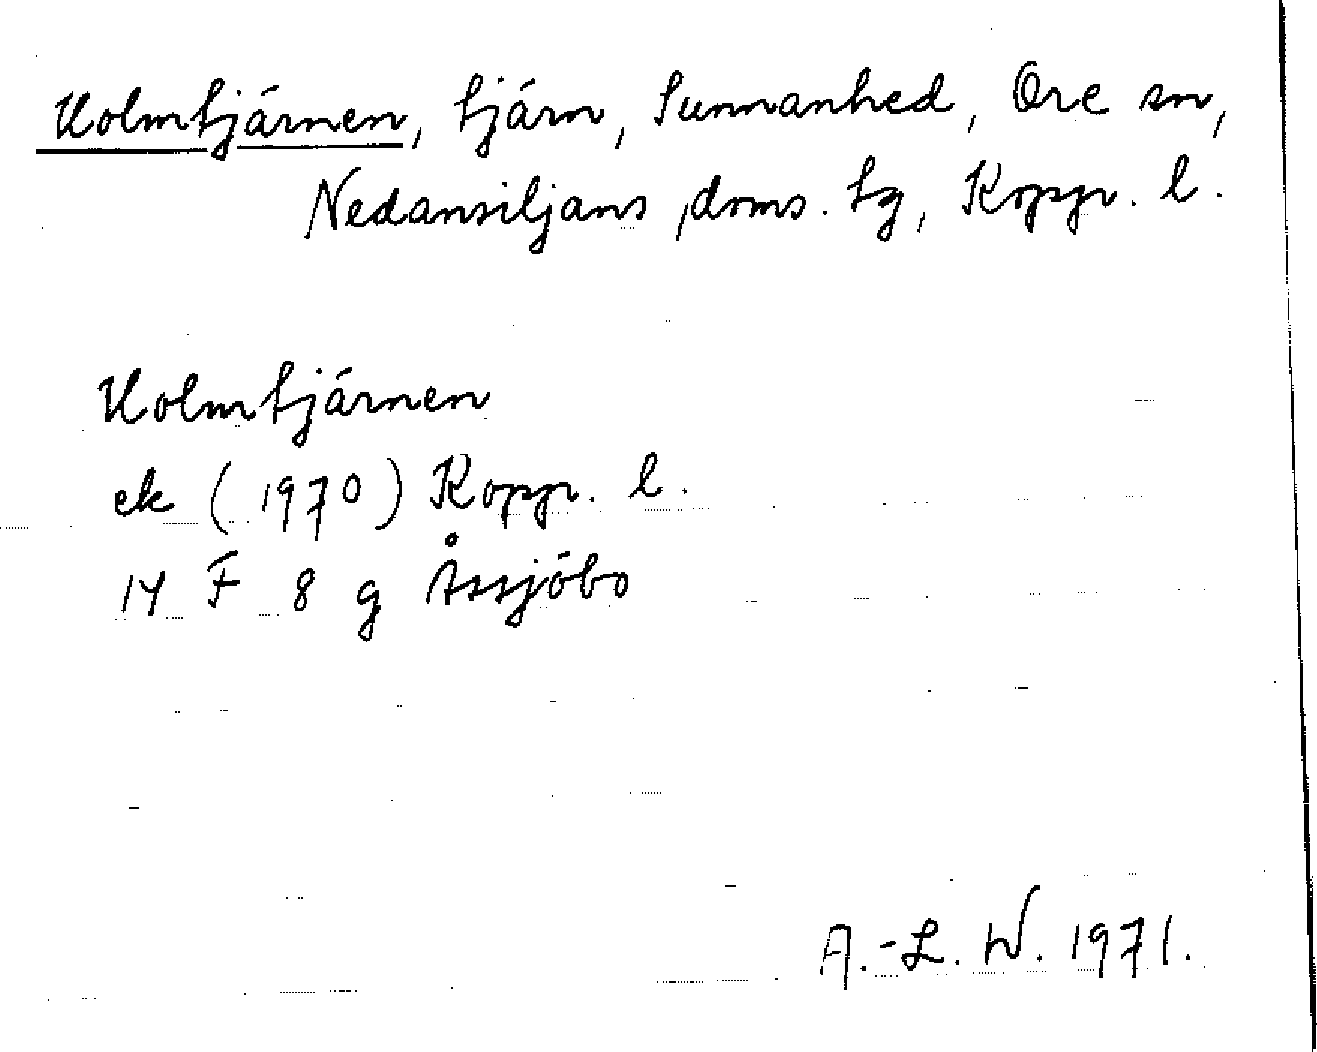 Holmtjärnen, tjärn, Sunnanhed, Ore sn,
Nedansiljans doms. tg, Koppr. l.
Holmtjärnen
ek (1970) Koppr. l.
14 F 8 g Åssjöbo
A.-L. W. 1971.